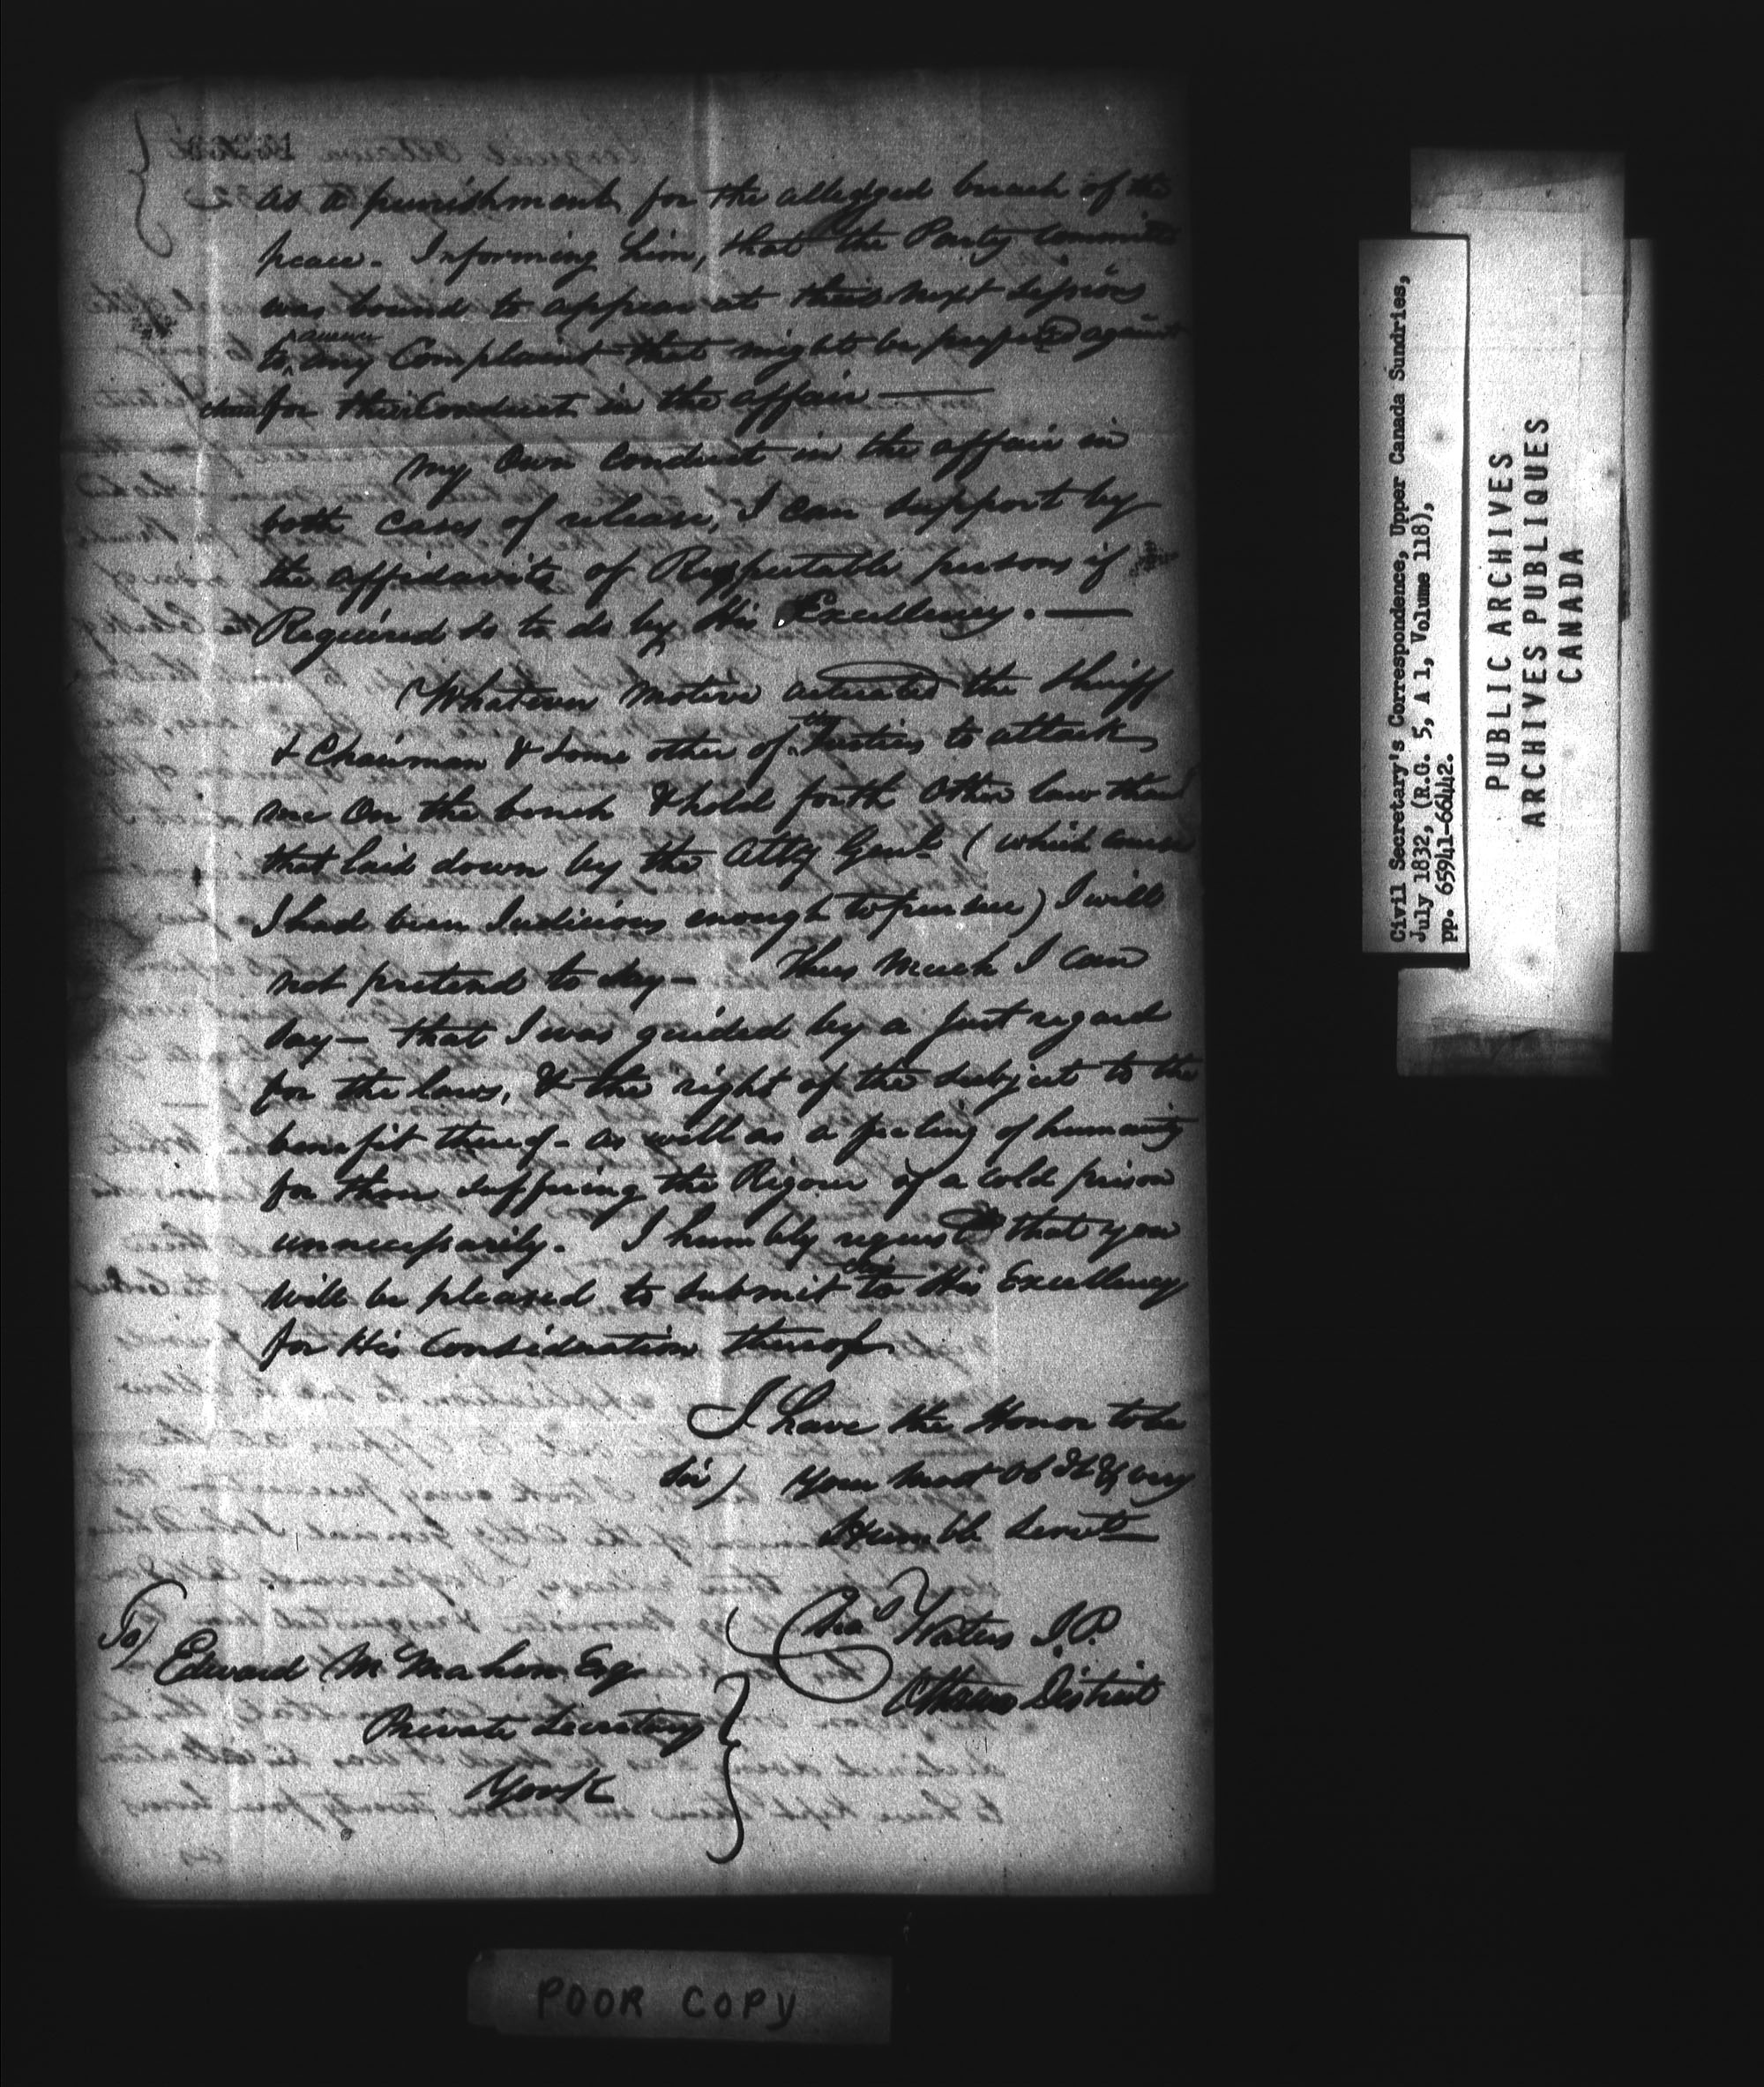 as a punishment for the alledged breach of the
peace. Informing him, that the Party committed
was bound to appear at this next Sessions
to answer any Complaint that might be prefered against
them for their Conduct in the affair —
My own Conduct in the affair in
both cases of release, I can support by
the affidavits of Respectable persons if
Required so to do by His Excellency. —
Whatever motive actuated the Sheriff
& Chairman & some other of the Justices to attack
me on the bench & hold forth other law than
that laid down by the Atty Genl (which course
I had been Judicious enough to pursue) I will
not pretend to say — Thus much I can
say — that I was guided by a just regard
for the laws, & the right of the subject to the
benefit thereof - as well as a feeling of humanity
for those suffering the Rigour of a cold prison
unnecessarily. I humbly request that you
will be pleased to submit this to His Excellency
for His Consideration thereof.
I have the Honor to be
Sir) Your most Obdt & very
Humble Servt
Chas Waters J.P.
Ottawa District
To)
Edward McMahon Esq
Private Secretary
York
POOR COPY
Civil Secretary's Correspondence, Upper Canada Sundries,
July 1832, (R.G. 5, A 1, Volume 118),
pp. 65941-66442.
PUBLIC ARCHIVES
ARCHIVES PUBLIQUES
CANADA